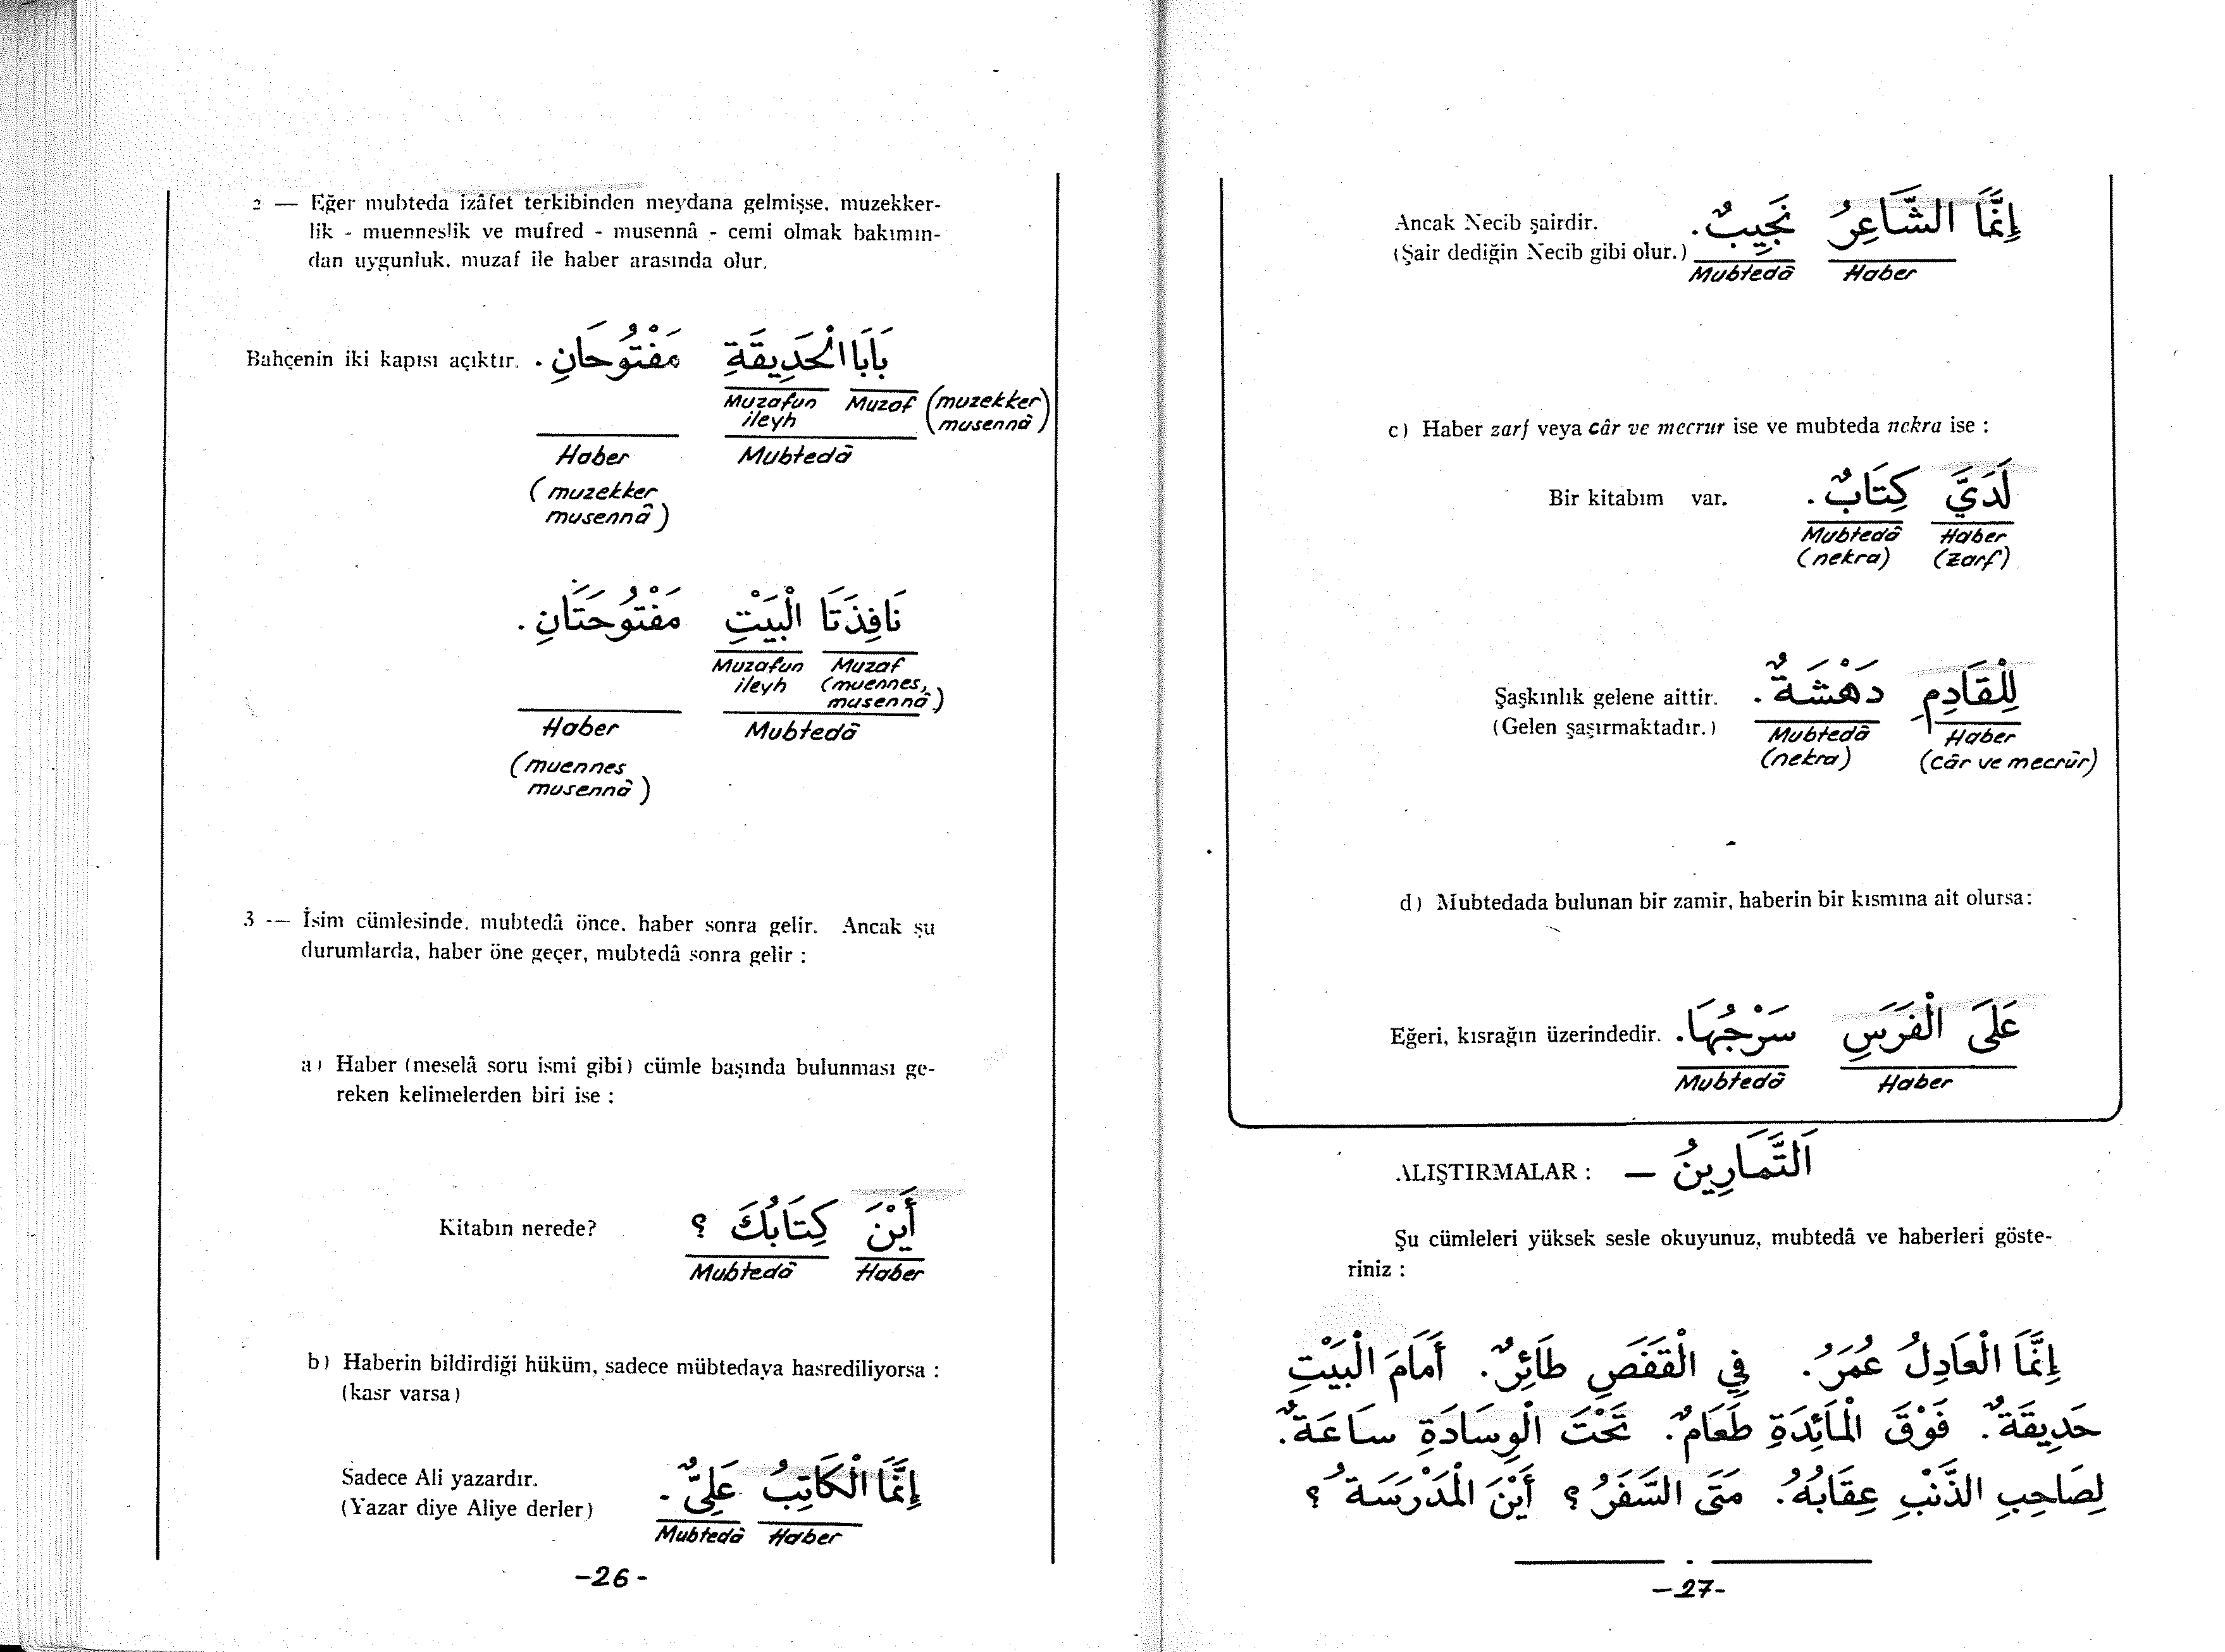 2 — Eğer mubteda izâfet terkibinden meydana gelmişse, muzekker-
lik - muenneslik ve mufred - musennâ - cemi olmak bakımın-
dan uygunluk, muzaf ile haber arasında olur.
Bahçenin iki kapısı açıktır. بَابَا الْحَدِيقَةِ مَفْتُوحَانِ .
Muzafun ileyh Muzaf (muzekker musennâ)
Haber Mubtedâ
(muzekker
musennâ)
نَافِذَتَا الْبَيْتِ مَفْتُوحَتَانِ .
Muzafun ileyh Muzaf (muennes, musennâ)
Haber Mubtedâ
(muennes
musennâ)
3 — İsim cümlesinde, mubtedâ önce, haber sonra gelir. Ancak şu
durumlarda, haber öne geçer, mubtedâ sonra gelir :
a) Haber (meselâ soru ismi gibi) cümle başında bulunması ge-
reken kelimelerden biri ise :
Kitabın nerede? أَيْنَ كِتَابُكَ ؟
Mubtedâ Haber
b) Haberin bildirdiği hüküm, sadece mübtedaya hasrediliyorsa :
(kasr varsa)
Sadece Ali yazardır. إِنَّمَا الْكَاتِبُ عَلِيٌّ .
(Yazar diye Aliye derler)
Mubtedâ Haber
-26-
Ancak Necib şairdir. إِنَّمَا الشَّاعِرُ نَجِيبٌ .
(Şair dediğin Necib gibi olur.)
Mubtedâ Haber
c) Haber zarf veya câr ve mecrur ise ve mubteda nekra ise :
Bir kitabım var. لَدَيَّ كِتَابٌ .
Mubtedâ Haber
(nekra) (zarf)
Şaşkınlık gelene aittir. لِلْقَادِمِ دَهْشَةٌ .
(Gelen şaşırmaktadır.)
Mubtedâ Haber
(nekra) (câr ve mecrûr)
d) Mubtedada bulunan bir zamir, haberin bir kısmına ait olursa:
Eğeri, kısrağın üzerindedir. عَلَى الْفَرَسِ سَرْجُهَا .
Mubtedâ Haber
ALIŞTIRMALAR : — اَلتَّمَارِينُ
Şu cümleleri yüksek sesle okuyunuz, mubtedâ ve haberleri göste-
riniz :
إِنَّمَا الْعَادِلُ عُمَرُ . فِي الْقَفَصِ طَائِرٌ . أَمَامَ الْبَيْتِ
حَدِيقَةٌ . فَوْقَ الْمَائِدَةِ طَعَامٌ . تَحْتَ الْوِسَادَةِ سَاعَةٌ .
لِصَاحِبِ الذَّنْبِ عِقَابُهُ . مَتَى السَّفَرُ ؟ أَيْنَ الْمَدْرَسَةُ ؟
-27-